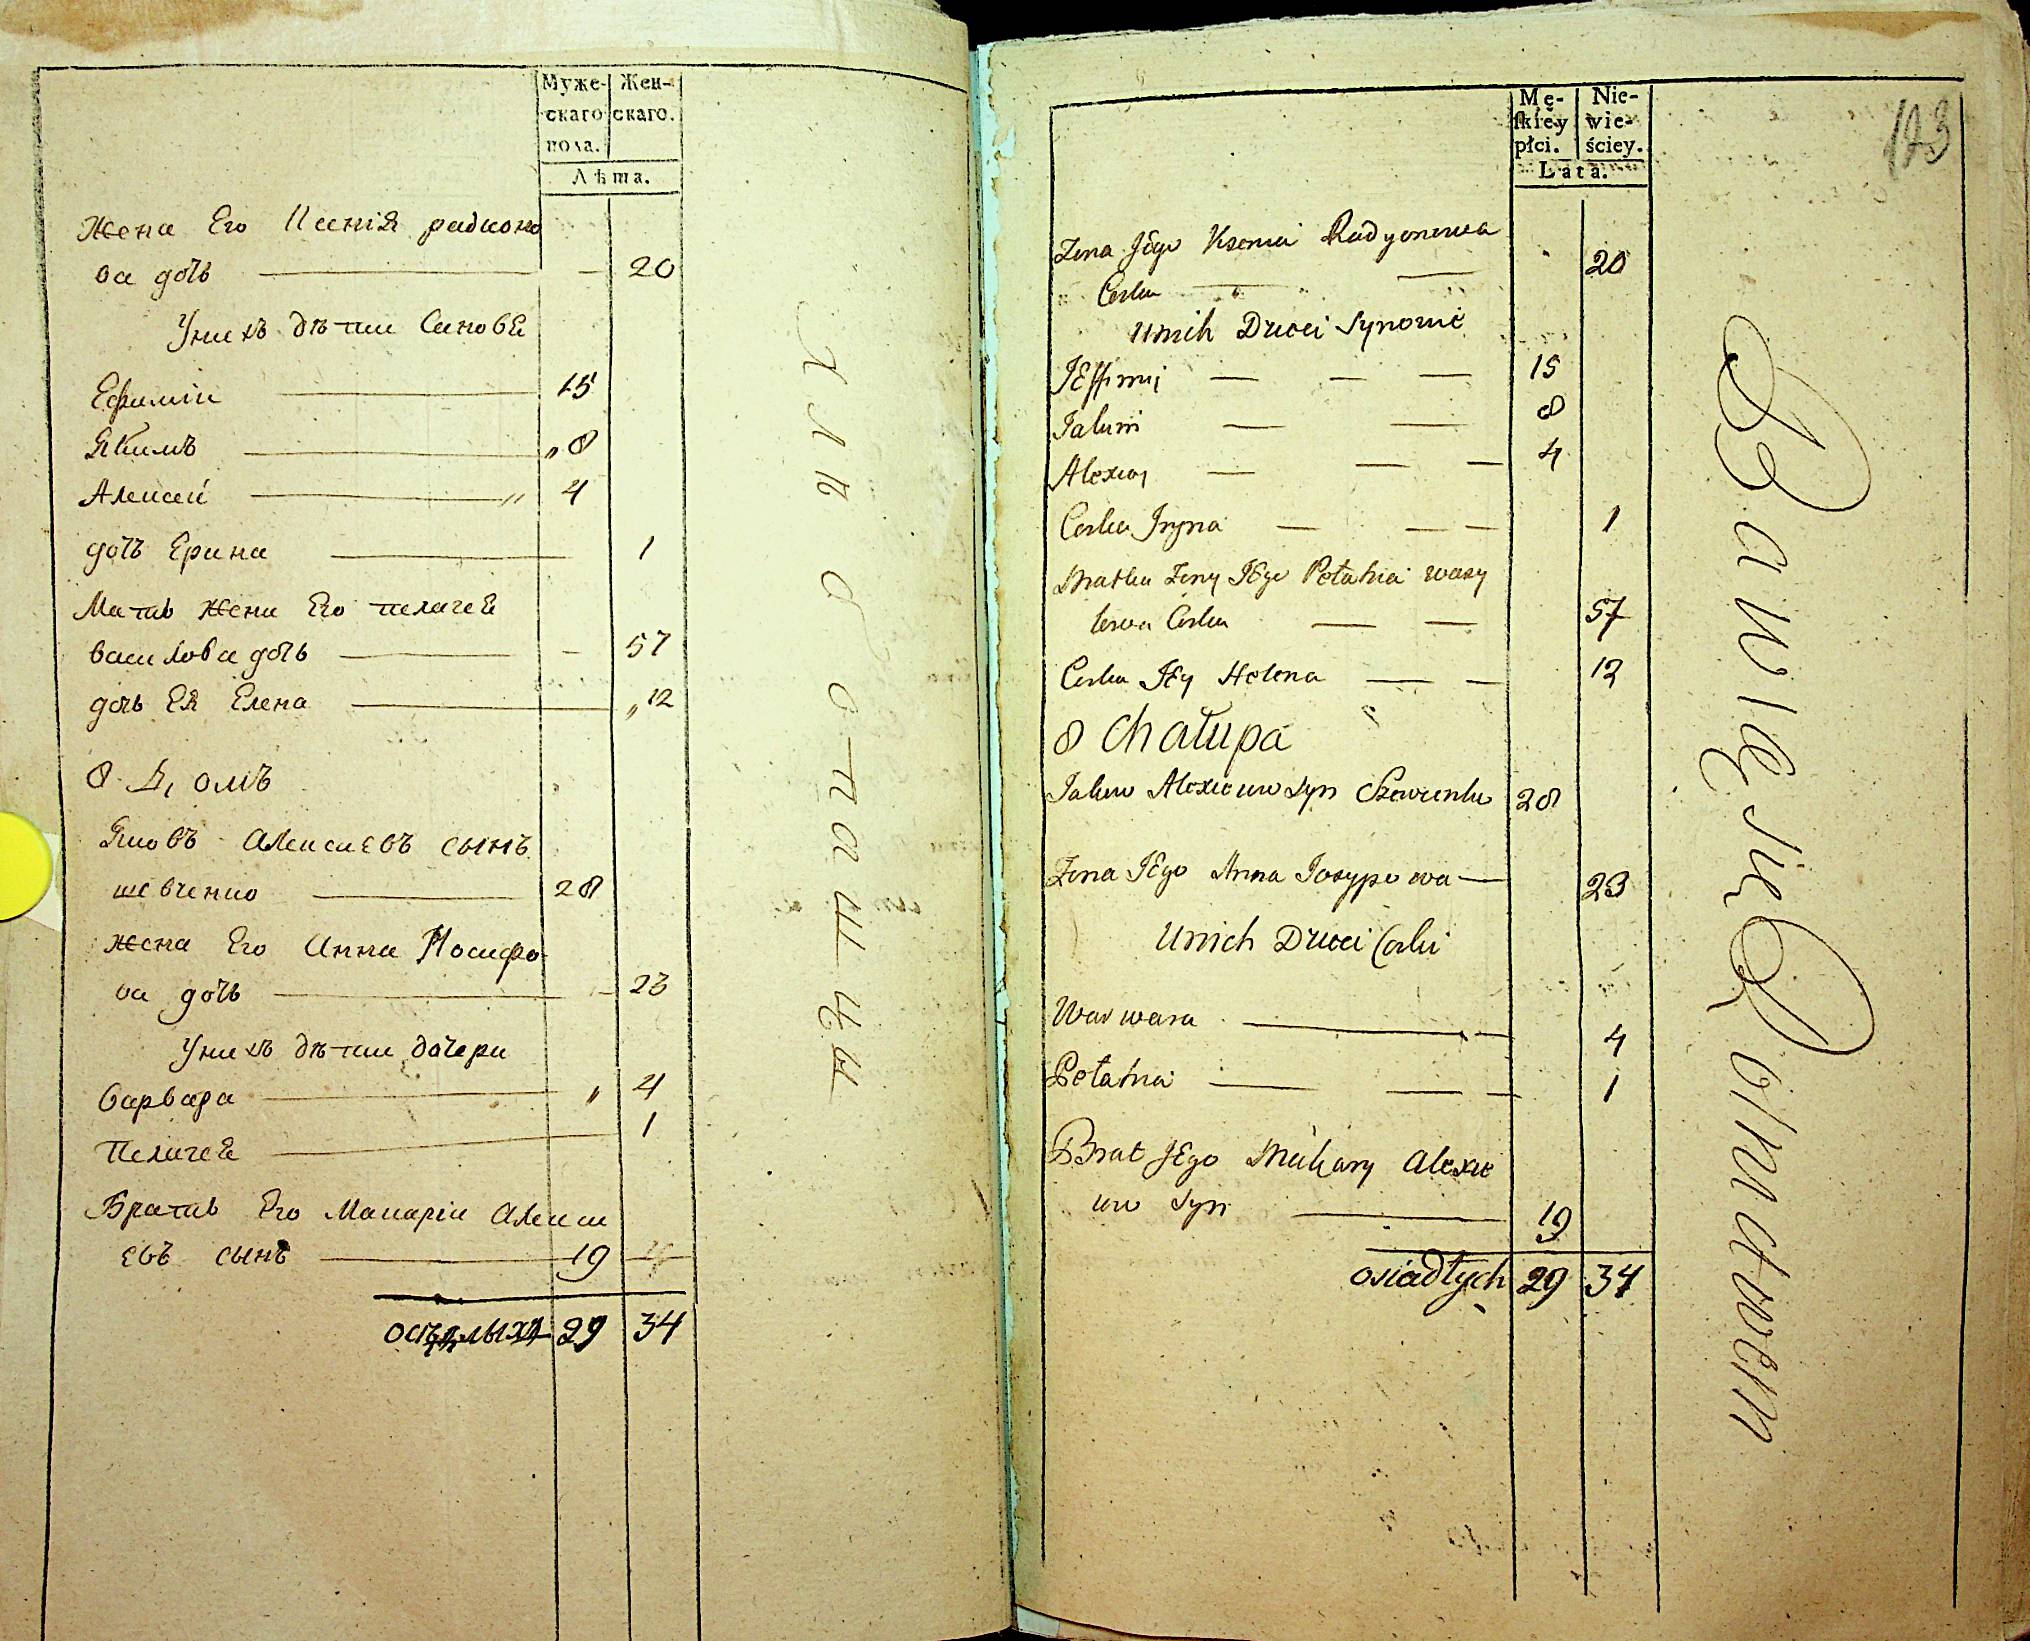 Муже- Жен-
скаго скаго.
пола.
Лѣта.
Жена Его Ксенія радионо
ва дочь — 20
Унихъ дѣти Синовѣ
Ефимiи — 15
Якимъ — „8
Алексей — „ 4
дочь Ерина — 1
Мать жени Его пелагеѣ
василова дочь — 57
дочь Ея Елена — „12
8. Домъ
Яковъ Алексиевъ сынъ
шевченко — 28
жена Его Анна Иосифо
ва дочь — 23
Унихъ дѣти дочери
Варвара — „ 4
Пелагеѣ — 1
Братъ Его Макаріи Алекси
евъ сынъ — 19
осѣдлыхъ 29 34
Хлѣбопашцы
123
Mę- Nie-
skiey wie-
płci. ściey.
Lata.
Zona Jego Ksenia Radyonowa
Corka — 20
Unich Dzieci Synowie
JEffimij — 15
Jakim — 8
Alexiey — 4
Corka Jryna — 1
Matka Zony JEgo Pełahia wasy
lowa Corka — 57
Corka JEy Helena — 12
8 Chałupa
Jakow Alexieiew Syn Szewczenko 28
Zona JEgo Anna Josypowa — 23
Unich Dzieci Corki
Warwara — 4
Pełahia — 1
Brat JEgo Makary Alexie
iew Syn — 19
osiadłych 29 34
Bawię się Rolnictwem